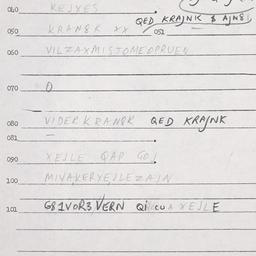 040 KEJXES
QED KRAJNK & AJNG
050 KRANGK XX 051
060 VILZAXMISTOMEOPRUEN
070 O
080 VIDER KRANGK QED KRAJNK
081
090 XEJLE QAP GO
100 MIVAXERXEJLEZAJN
101 G81VOR3VERN Qi cu A XEJLE